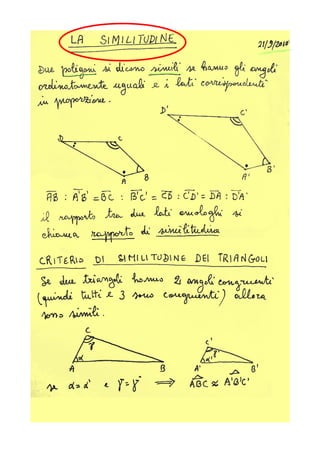 LA SIMILITUDINE
21/9/2010
Due poligoni si dicono simili se hanno gli angoli
ordinatamente uguali e i lati corrispondenti
in proporzione.
D' C'
D C
A B A' B'
AB : A'B' = BC : B'C' = CD : C'D' = DA : D'A'
il rapporto tra due lati omologhi si
chiama rapporto di similitudine
CRITERIO DI SIMILITUDINE DEI TRIANGOLI
Se due triangoli hanno 2 angoli congruenti
(quindi tutti e 3 sono congruenti) allora
sono simili.
C C'
γ γ'
α α'
A B A' B'
se α=α' e γ=γ' ⟹ ABC ≈ A'B'C'